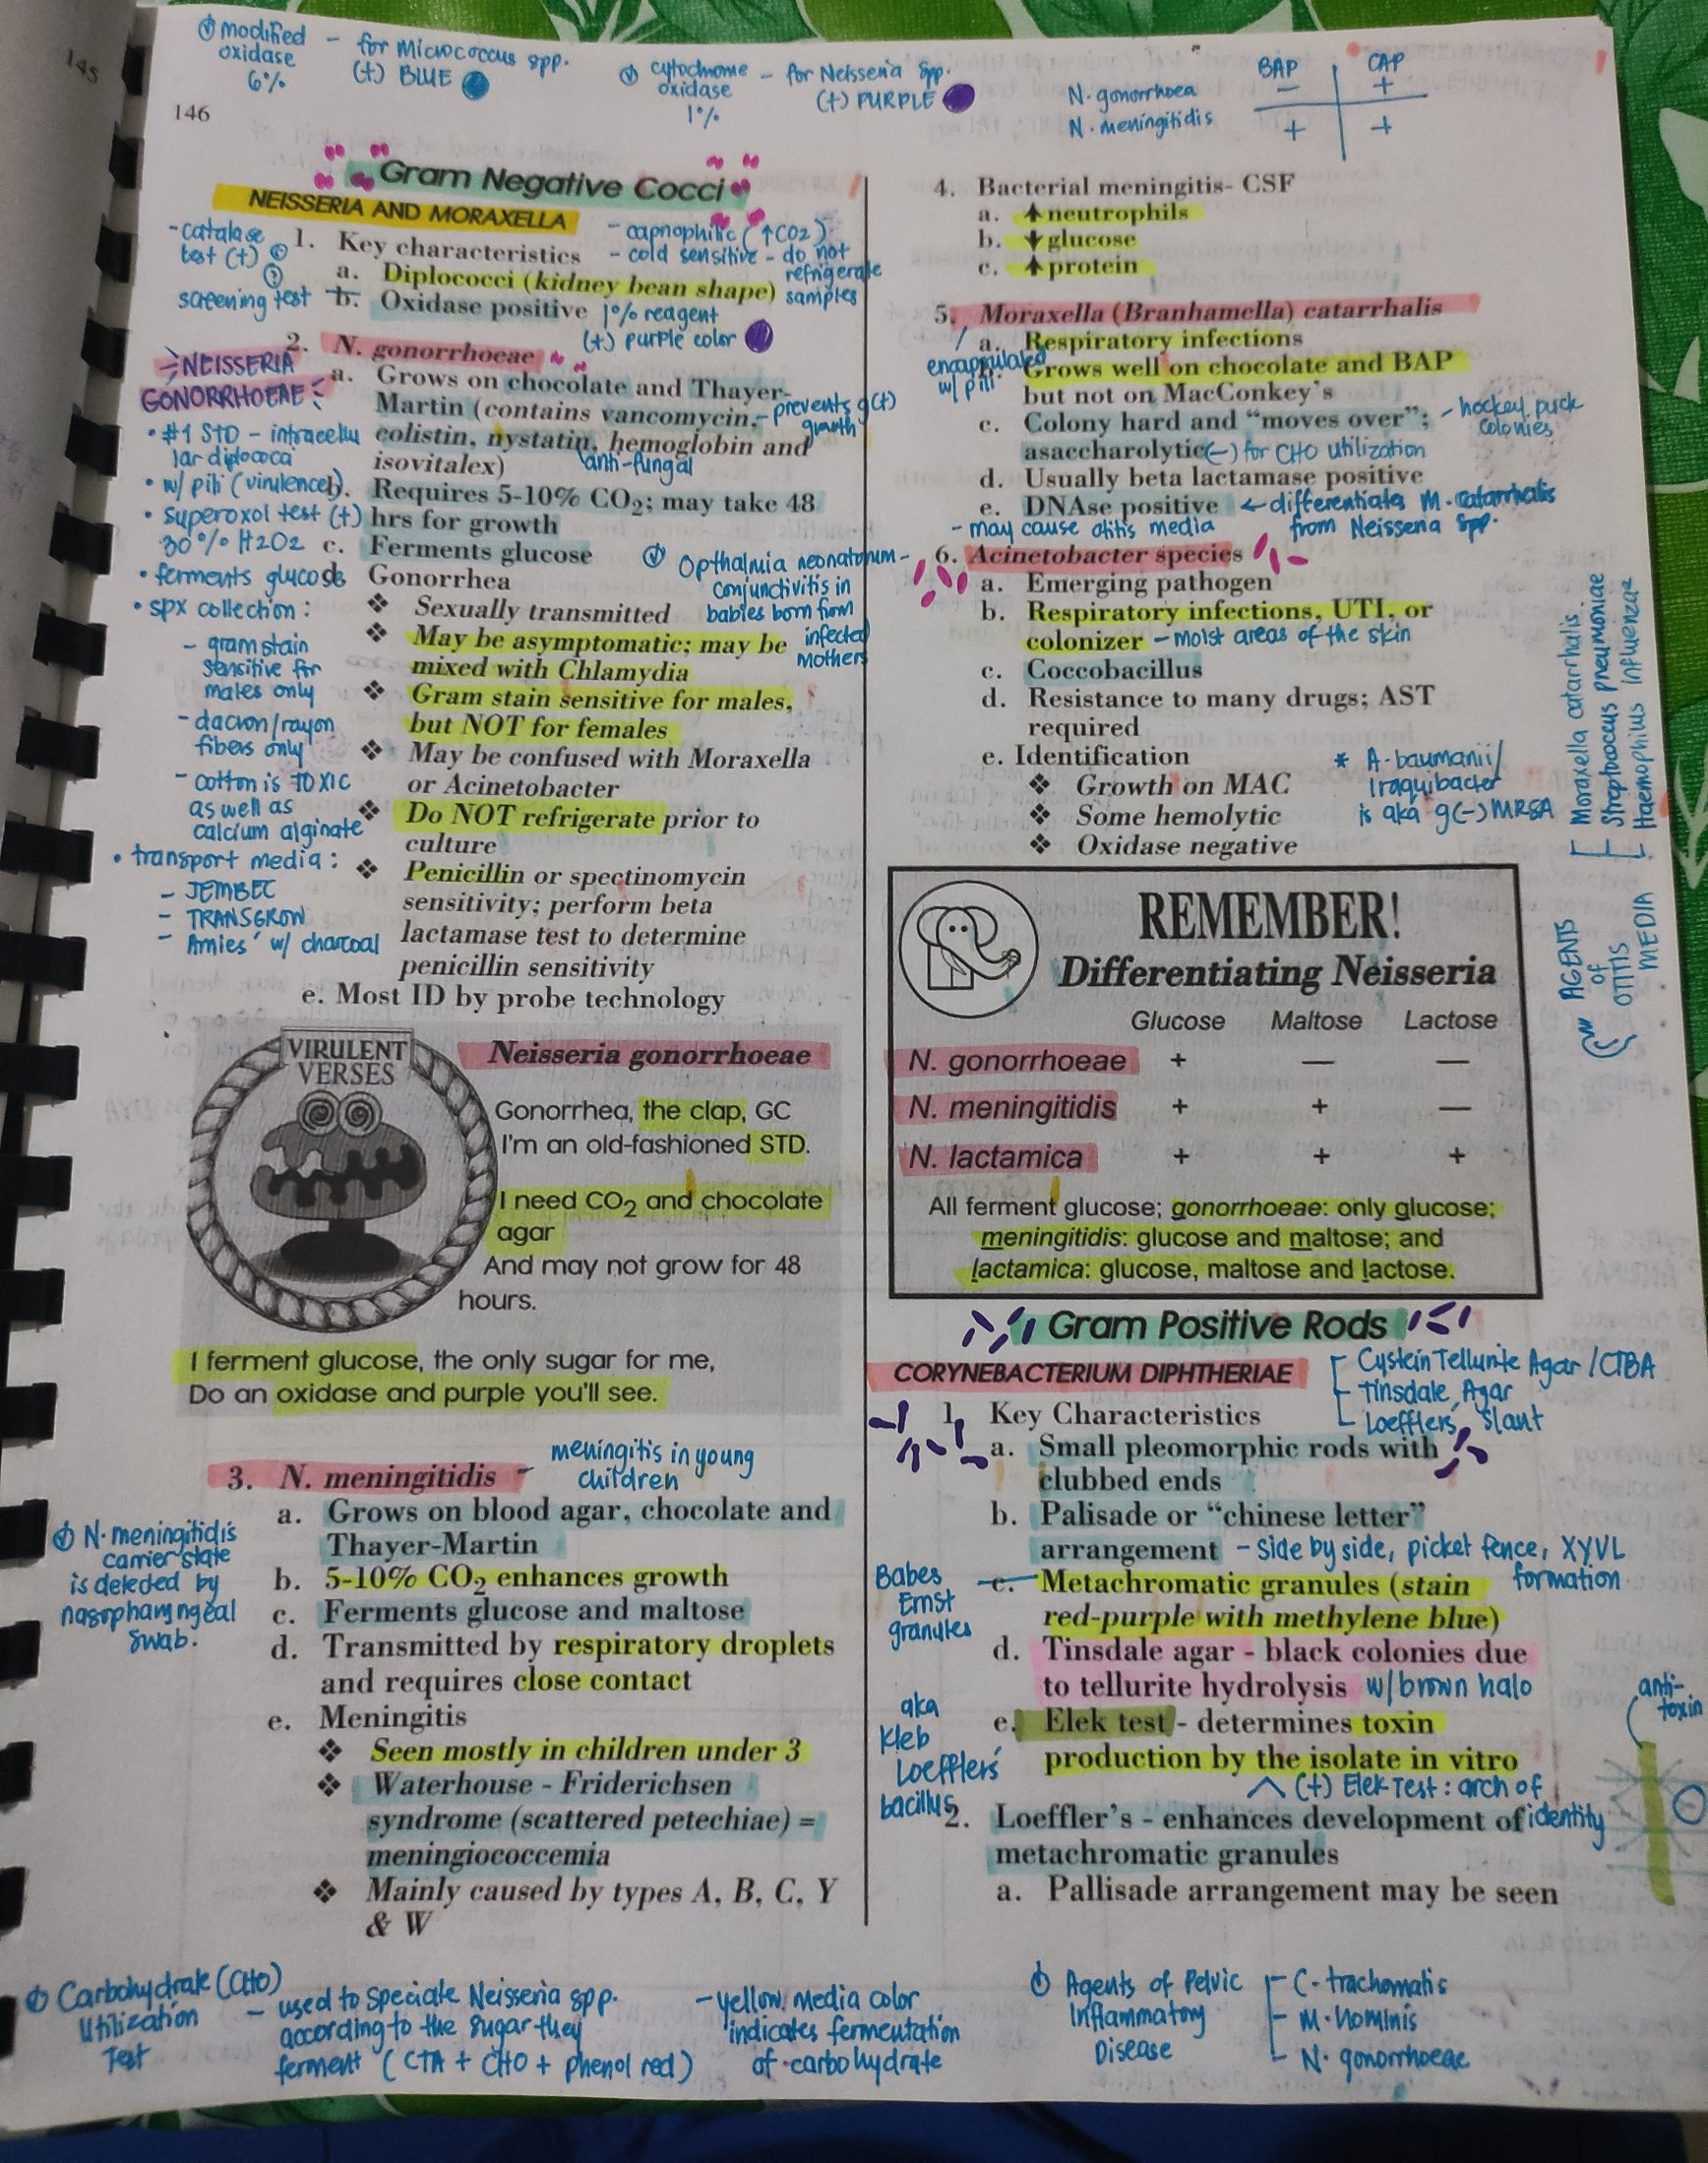 145
146
modified oxidase 6% - for Micrococcus spp. (+) BLUE
cytochrome oxidase 1% - for Neisseria spp. (+) PURPLE
BAP CAP
N. gonorrhoea - +
N. meningitidis + +
Gram Negative Cocci
NEISSERIA AND MORAXELLA
- catalase test (+)
screening test
- capnophilic (↑CO2)
- cold sensitive - do not refrigerate samples
1. Key characteristics
a. Diplococci (kidney bean shape)
b. Oxidase positive
1% reagent
(+) purple color
2. N. gonorrhoeae
a. Grows on chocolate and Thayer-
Martin (contains vancomycin,
colistin, nystatin, hemoglobin and
isovitalex)
- prevents g(+) growth
anti-fungal
b. Requires 5-10% CO2; may take 48
hrs for growth
c. Ferments glucose
d. Gonorrhea
❖ Sexually transmitted
❖ May be asymptomatic; may be
mixed with Chlamydia
❖ Gram stain sensitive for males,
but NOT for females
❖ May be confused with Moraxella
or Acinetobacter
❖ Do NOT refrigerate prior to
culture
❖ Penicillin or spectinomycin
sensitivity; perform beta
lactamase test to determine
penicillin sensitivity
e. Most ID by probe technology
NEISSERIA
GONORRHOEAE:
• #1 STD - intracellu
lar diplococci
• w/ pili (virulence)
• superoxol test (+)
30% H2O2
• ferments glucose
• spx collection:
- gram stain
sensitive for
males only
- dacron/rayon
fibers only
- cotton is TOXIC
as well as
calcium alginate
• transport media:
- JEMBEC
- TRANSGROW
- Amies' w/ charcoal
Opthalmia neonatorum -
conjunctivitis in
babies born from
infected
mothers
VIRULENT
VERSES
Neisseria gonorrhoeae
Gonorrhea, the clap, GC
I'm an old-fashioned STD.
I need CO2 and chocolate
agar
And may not grow for 48
hours.
I ferment glucose, the only sugar for me,
Do an oxidase and purple you'll see.
3. N. meningitidis
- meningitis in young
children
a. Grows on blood agar, chocolate and
Thayer-Martin
b. 5-10% CO2 enhances growth
c. Ferments glucose and maltose
d. Transmitted by respiratory droplets
and requires close contact
e. Meningitis
❖ Seen mostly in children under 3
❖ Waterhouse - Friderichsen
syndrome (scattered petechiae) =
meningiococcemia
❖ Mainly caused by types A, B, C, Y
& W
N. meningitidis
carrier state
is detected by
nasopharyngeal
swab.
Carbohydrate (CHO)
Utilization
Test
- used to speciate Neisseria spp.
according to the sugar they
ferment (CTA + CHO + phenol red)
- yellow media color
indicates fermentation
of carbohydrate
4. Bacterial meningitis- CSF
a. ↑ neutrophils
b. ↓ glucose
c. ↑ protein
5. Moraxella (Branhamella) catarrhalis
encapsulated
w/ pili
a. Respiratory infections
Grows well on chocolate and BAP
but not on MacConkey's
c. Colony hard and “moves over”;
- hockey puck
colonies
asaccharolytic
(-) for CHO utilization
d. Usually beta lactamase positive
e. DNAse positive
← differentiates M. catarrhalis
from Neisseria spp.
- may cause otitis media
6. Acinetobacter species
a. Emerging pathogen
b. Respiratory infections, UTI, or
colonizer
- moist areas of the skin
c. Coccobacillus
d. Resistance to many drugs; AST
required
e. Identification
❖ Growth on MAC
❖ Some hemolytic
❖ Oxidase negative
* A. baumanii/
Iraquibacter
is aka g(-) MRSA
AGENTS
of
OTITIS
MEDIA
Moraxella catarrhalis.
Streptococcus pneumoniae
Haemophilus influenzae
REMEMBER!
Differentiating Neisseria
Glucose Maltose Lactose
N. gonorrhoeae + — —
N. meningitidis + + —
N. lactamica + + +
All ferment glucose; gonorrhoeae: only glucose;
meningitidis: glucose and maltose; and
lactamica: glucose, maltose and lactose.
Gram Positive Rods
CORYNEBACTERIUM DIPHTHERIAE
Cystein Tellurite Agar / CTBA
Tinsdale Agar
Loefflers' Slant
1. Key Characteristics
a. Small pleomorphic rods with
clubbed ends
b. Palisade or “chinese letter”
arrangement
- side by side, picket fence, XYVL
formation
Babes
Ernst
granules
c. Metachromatic granules (stain
red-purple with methylene blue)
d. Tinsdale agar - black colonies due
to tellurite hydrolysis
w/ brown halo
aka
Kleb
Loefflers'
bacillus
e. Elek test - determines toxin
production by the isolate in vitro
(+) Elek Test: arch of
identity
anti-
toxin
2. Loeffler's - enhances development of
metachromatic granules
a. Pallisade arrangement may be seen
Agents of Pelvic
Inflammatory
Disease
- C. trachomatis
- M. hominis
- N. gonorrhoeae